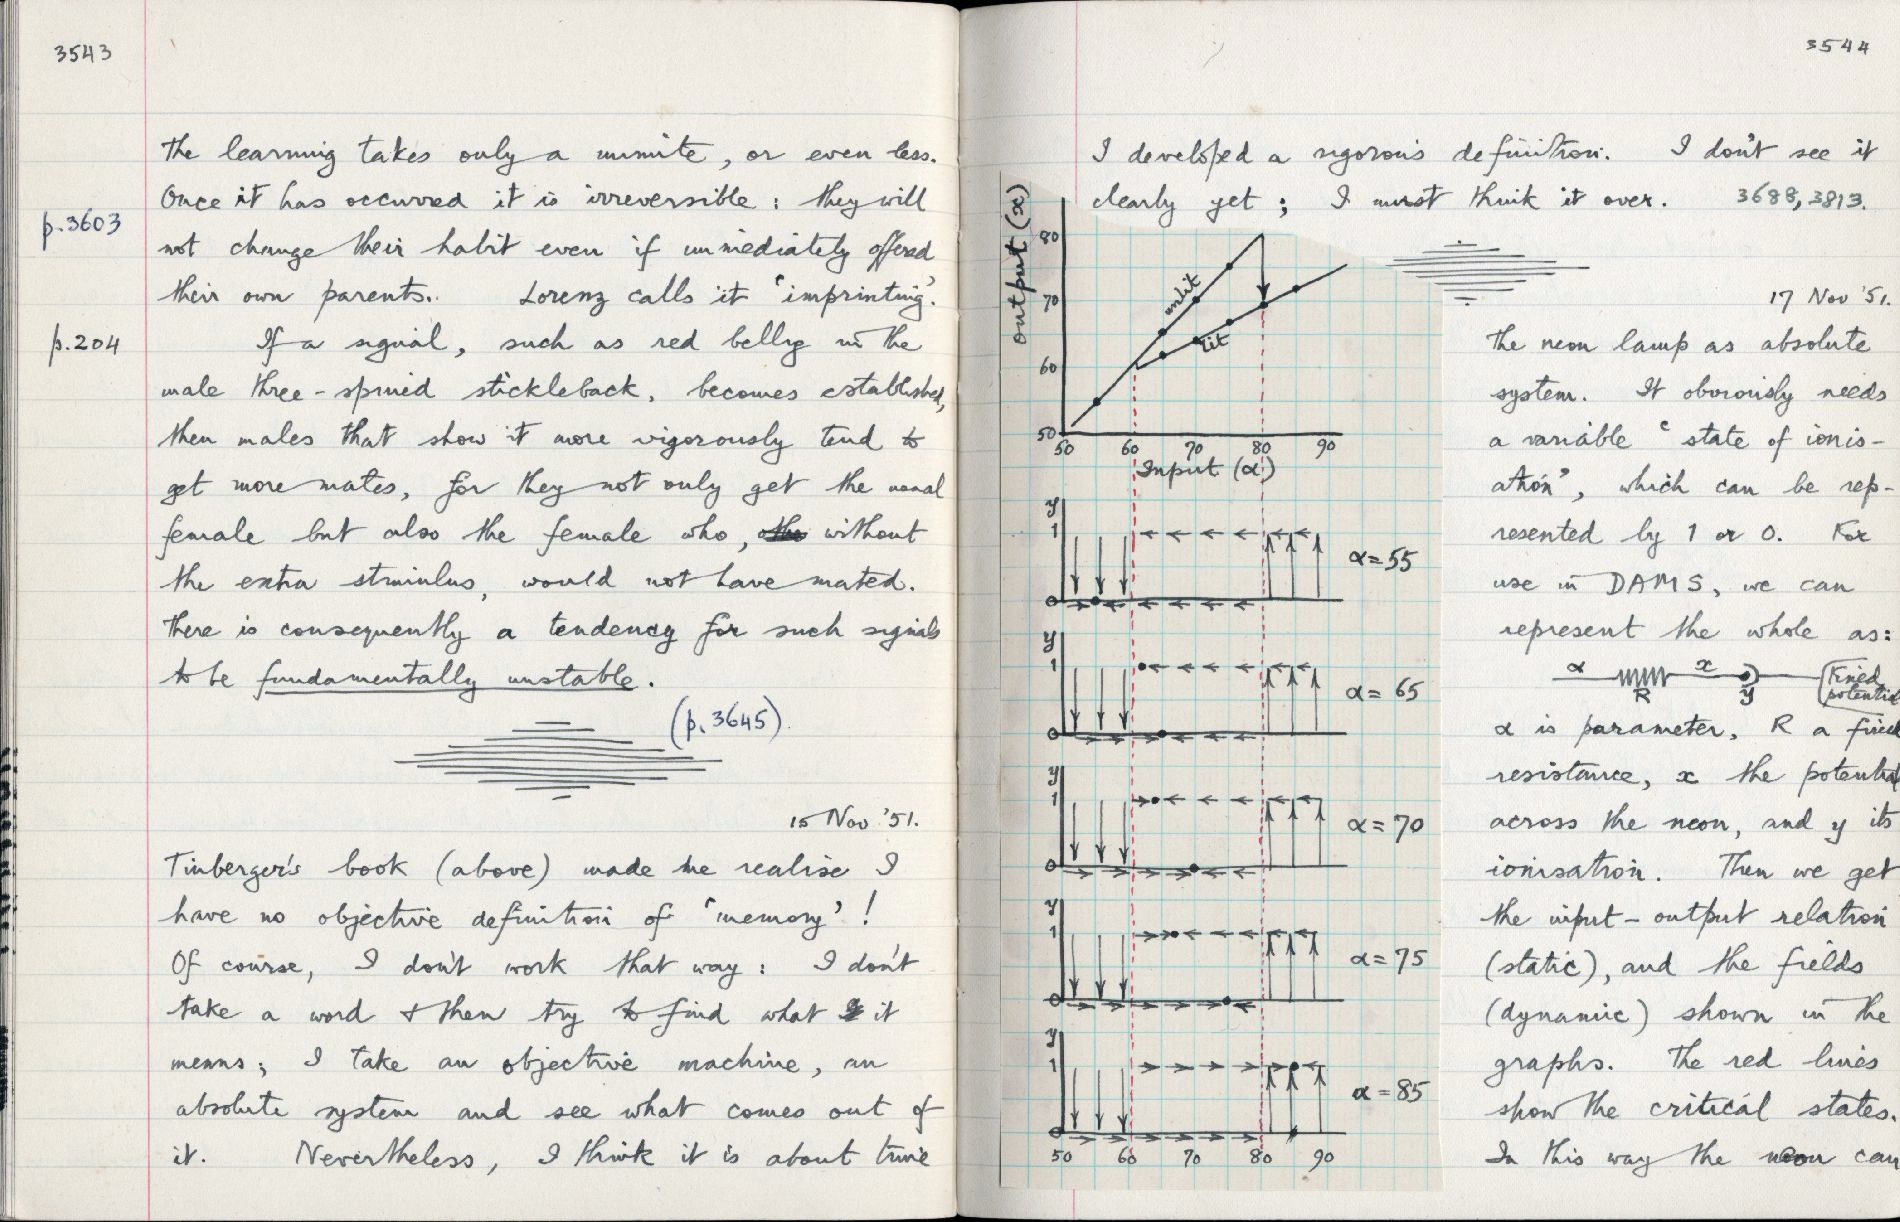 3543
the learning takes only a minute, or even less.
Once it has occurred it is irreversible : they will
p.3603
not change their habit even if immediately offered
their own parents. Lorenz calls it 'imprinting'.
p.204
If a signal, such as red belly in the
male three-spined stickleback, becomes established,
then males that show it more vigorously tend to
get more mates, for they not only get the usual
female but also the female who, without
the extra stimulus, would not have mated.
There is consequently a tendency for such signals
to be fundamentally unstable.
(p.3645).
15 Nov '51.
Tinbergen's book (above) made me realise I
have no objective definition of 'memory'!
Of course, I don't work that way: I don't
take a word & then try to find what it
means; I take an objective machine, an
absolute system and see what comes out of
it. Nevertheless, I think it is about time
3544
I developed a rigorous definition. I don't see it
clearly yet ; I must think it over. 3688, 3813.
output (x)
80
70
60
50
unlit
lit
50 60 70 80 90
Input (α)
y
1
0
α=55
y
1
0
α=65
y
1
0
α=70
y
1
0
α=75
y
1
0
α=85
50 60 70 80 90
17 Nov '51.
The neon lamp as absolute
system. It obviously needs
a variable 'state of ionis-
ation', which can be rep-
resented by 1 or 0. For
use in DAMS, we can
represent the whole as:
α R x y Fixed potential
α is parameter, R a fixed
resistance, x the potential
across the neon, and y its
ionisation. Then we get
the input-output relation
(static), and the fields
(dynamic) shown in the
graphs. The red lines
show the critical states.
In this way the neon can